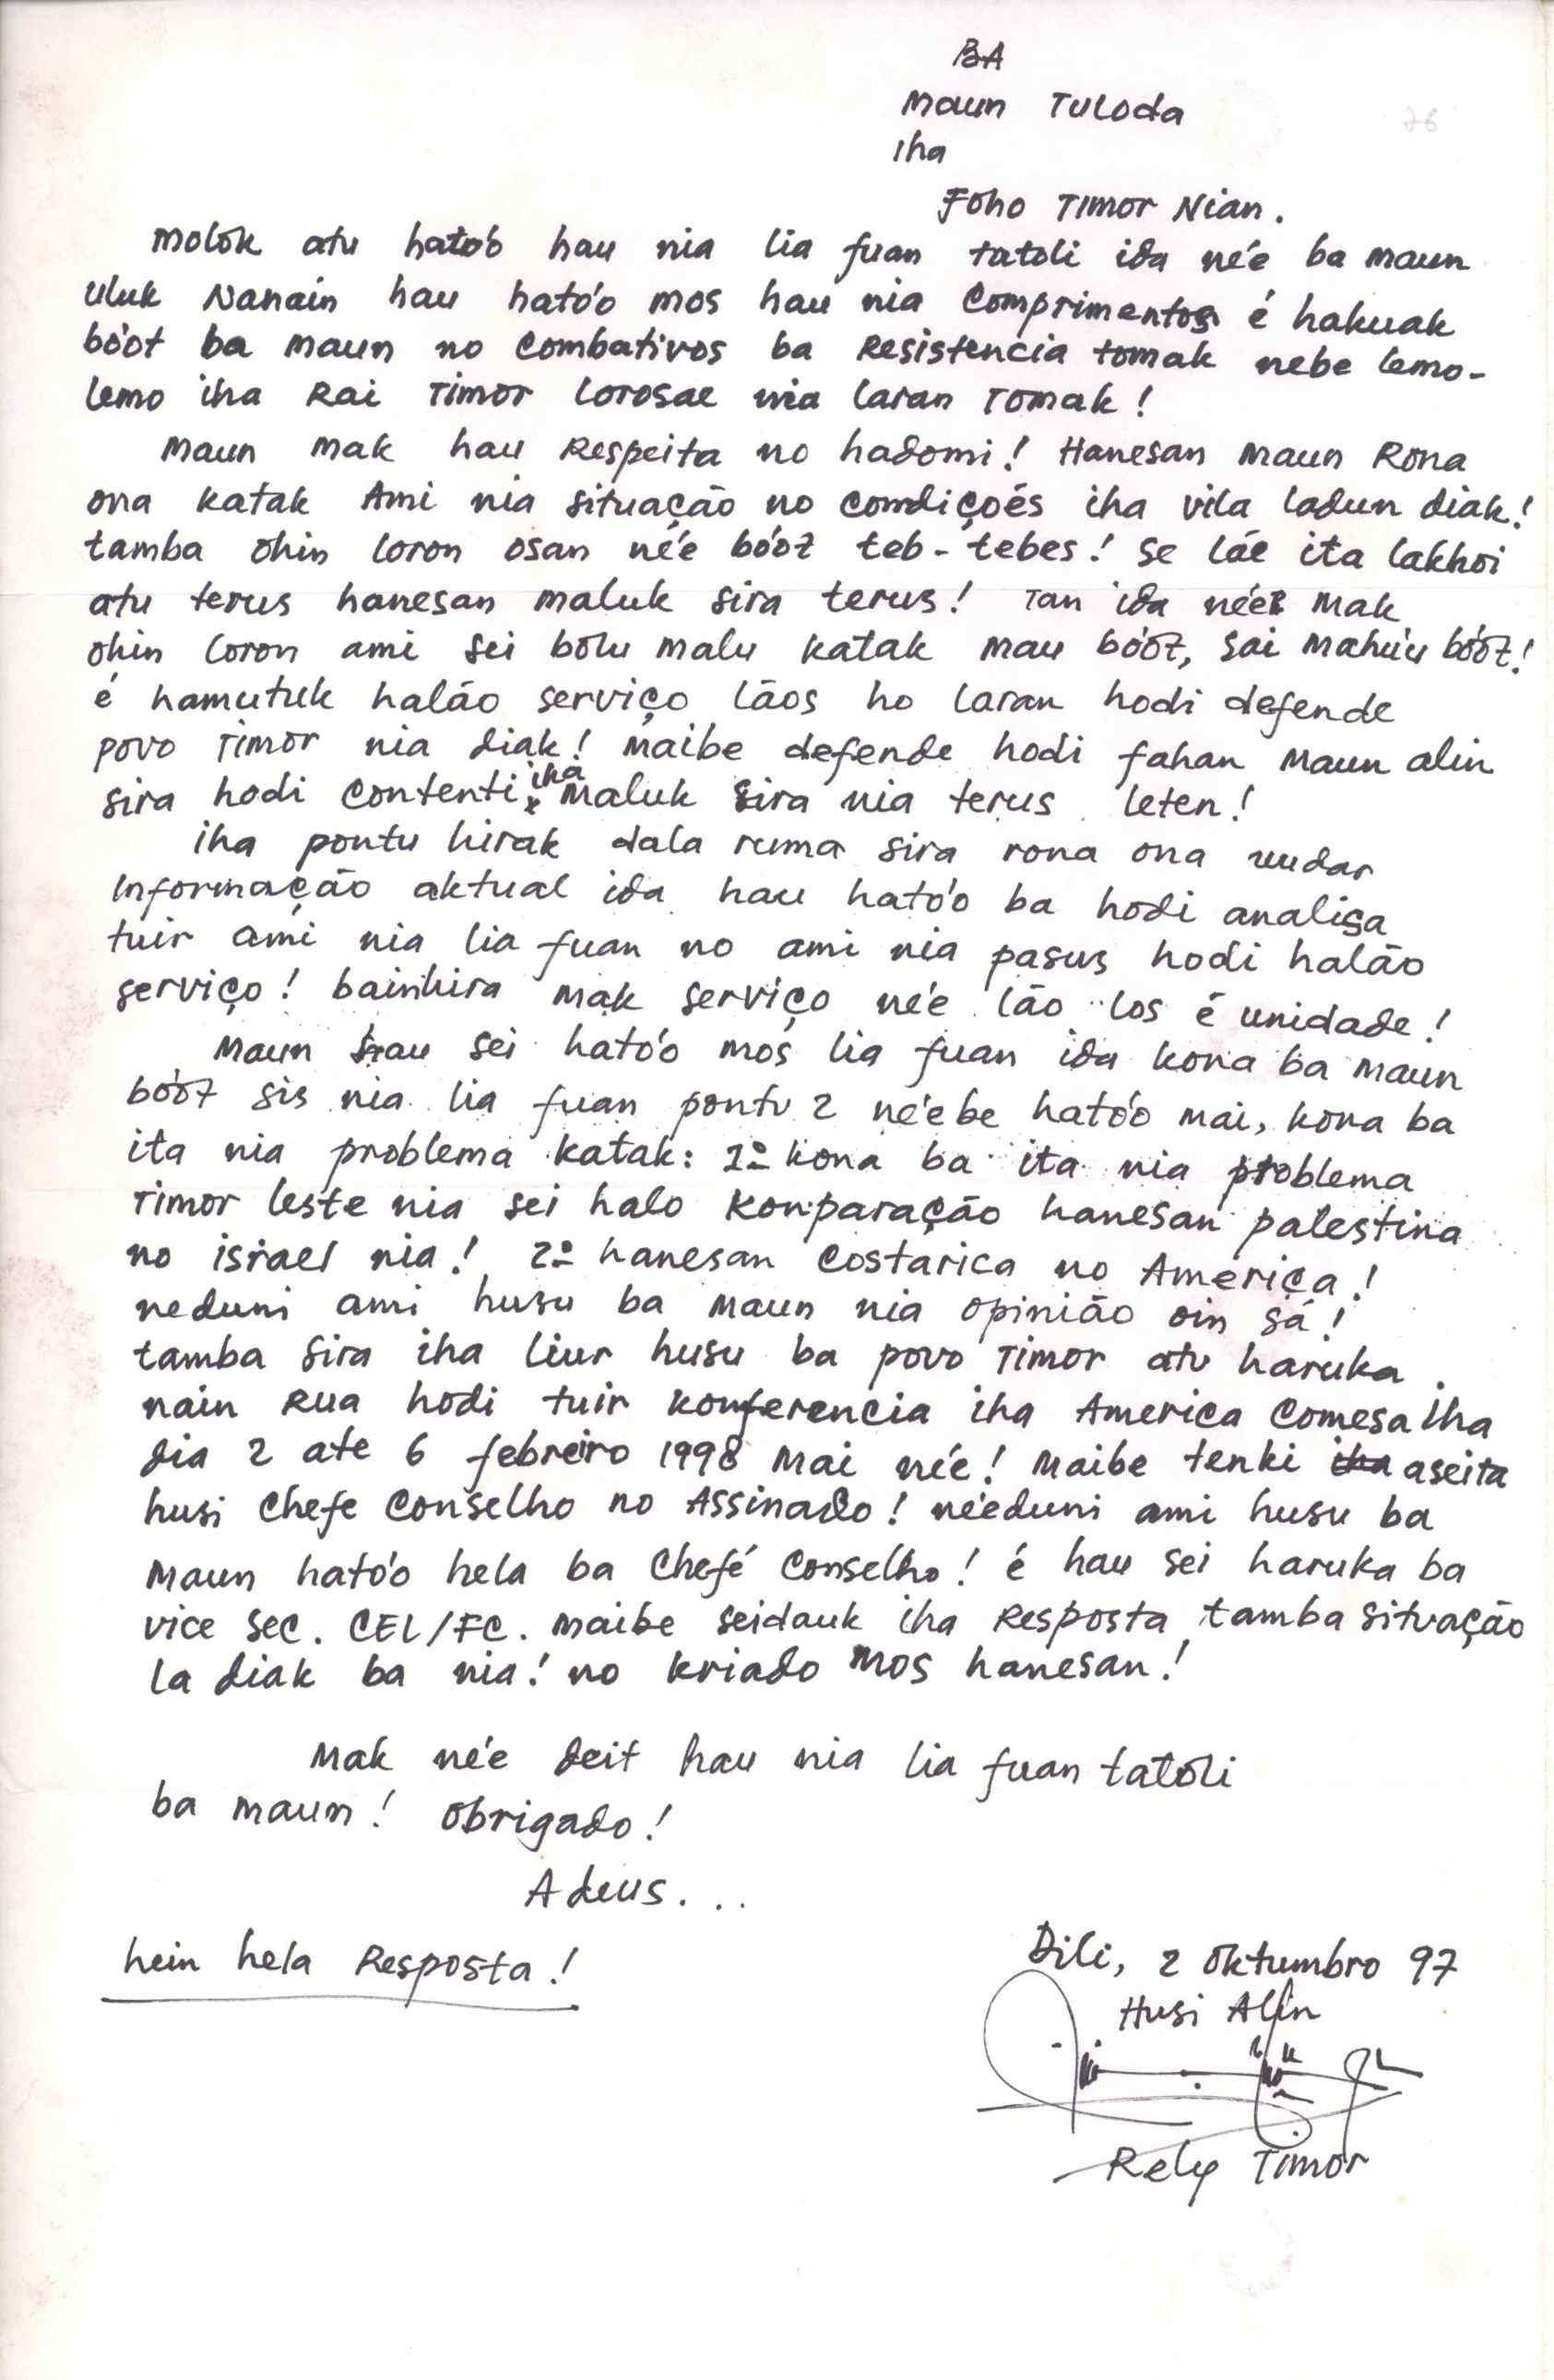 BA
Maun Tuloda
Iha
Foho Timor Nian.
76
Molok atu ható'o hau nia lia fuan tatoli ida né'e ba maun
uluk Nanain hau ható'o mos hau nia Comprimentos é hakuak
bó'ot ba maun no Combativos ba Resistencia tomak nebe lemo-
lemo iha Rai Timor lorosae nia laran Tomak!
Maun mak hau Respeita no hadomi! Hanesan Maun Rona
ona katak Ami nia situação no condições iha vila ladun diak!
tamba ohin loron osan né'e bó'ot teb-tebes! se láe ita lakhoi
atu terus hanesan maluk sira terus! Tan ida né'e mak
ohin loron ami sei bolu malu katak mau bó'ot, sai mahú'u bó'ot!
é hamutuk haláo serviço láos ho laran hodi defende
povo Timor nia diak! maibe defende hodi fahan Maun alin
sira hodi contenti iha maluk sira nia terus leten!
iha pontu hirak dala ruma sira rona ona nudar
Informação aktual ida hau ható'o ba hodi analiça
tuir ami nia lia fuan no ami nia pasus hodi haláo
serviço! bainhira mak serviço né'e láo los é unidade!
Maun hau sei ható'o mós lia fuan ida kona ba maun
bó'ot sis nia lia fuan pontu 2 né'ebe ható'o mai, kona ba
ita nia problema katak: 1º kona ba ita nia problema
Timor leste nia sei halo Konparação hanesan palestina
no israel nia! 2º hanesan Costarica no America!
neduni ami husu ba maun nia opinião oin sá!
tamba sira iha liur husu ba povo Timor atu haruka
nain Rua hodi tuir konferencia iha America Comesa iha
dia 2 ate 6 febreiro 1998 mai né'e! Maibe tenki iha aseita
husi Chefe Conselho no Assinado! né'eduni ami husu ba
Maun ható'o hela ba Chefé Conselho! é hau sei haruka ba
vice Sec. CEL/FC. maibe seidauk iha Resposta, tamba situação
la diak ba nia! no kriado mos hanesan!
Mak né'e deit hau nia lia fuan tatoli
ba maun! Obrigado!
Adeus...
hein hela Resposta!
Dili, 2 Oktumbro 97
Husi Alin
Rely Timor